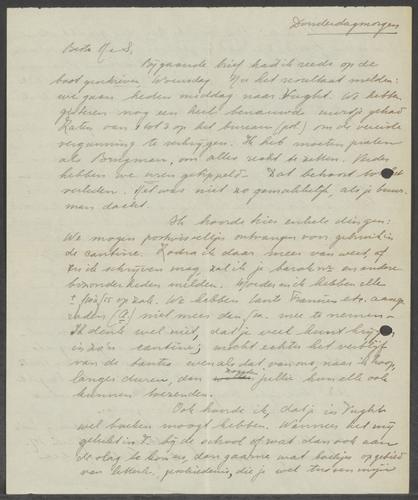 Donderdagmorgen
Beste M. S.
Bijgaande brief had ik reeds op de
boot geschreven Woensdag. Nu het resultaat melden:
we gaan heden middag naar Vught. We hebben
gisteren nog een heel benauwde uurtje gehad
zaten van 1 tot 3 op het bureau (pol) om de vereiste
vergunning te verkrijgen. Ik heb moeten praten
als Brugman, om alles recht te zetten. Verder
hebben we uren getippeld. Dat behoort tot het
verleden. Het was niet zo gemakkelijk, als je buur-
man dacht.
Ik hoorde hier enkele dingen:
We mogen postwisseltjes ontvangen voor gebruik in
de cantine. Zodra ik daar meer van weet, of
zodra ik schrijven mag, zal ik je barak nr en andere
bijzonderheden melden. Worden ik hebben elk
op zak. We hebben tante aange-
raden niet meer dan mee te nemen.
Ik denk wel niet, dat je veel kunt krijgen
in zo'n cantine; mocht echter het verblijf
van de tantes even als dat van ons, naar ik hoop,
langer duren, dan zouden jullie hun elk ook
kunnen toezenden.
Ook hoorde ik, dat je in Vught
wel boeken moogt hebben. Wanneer het mij
gelukt in V. bij de school of wat dan ook aan
de slag te komen, dan gaarne wat boekjes op gebied
van letterk., geschiedenis, die je wel tussen mijn